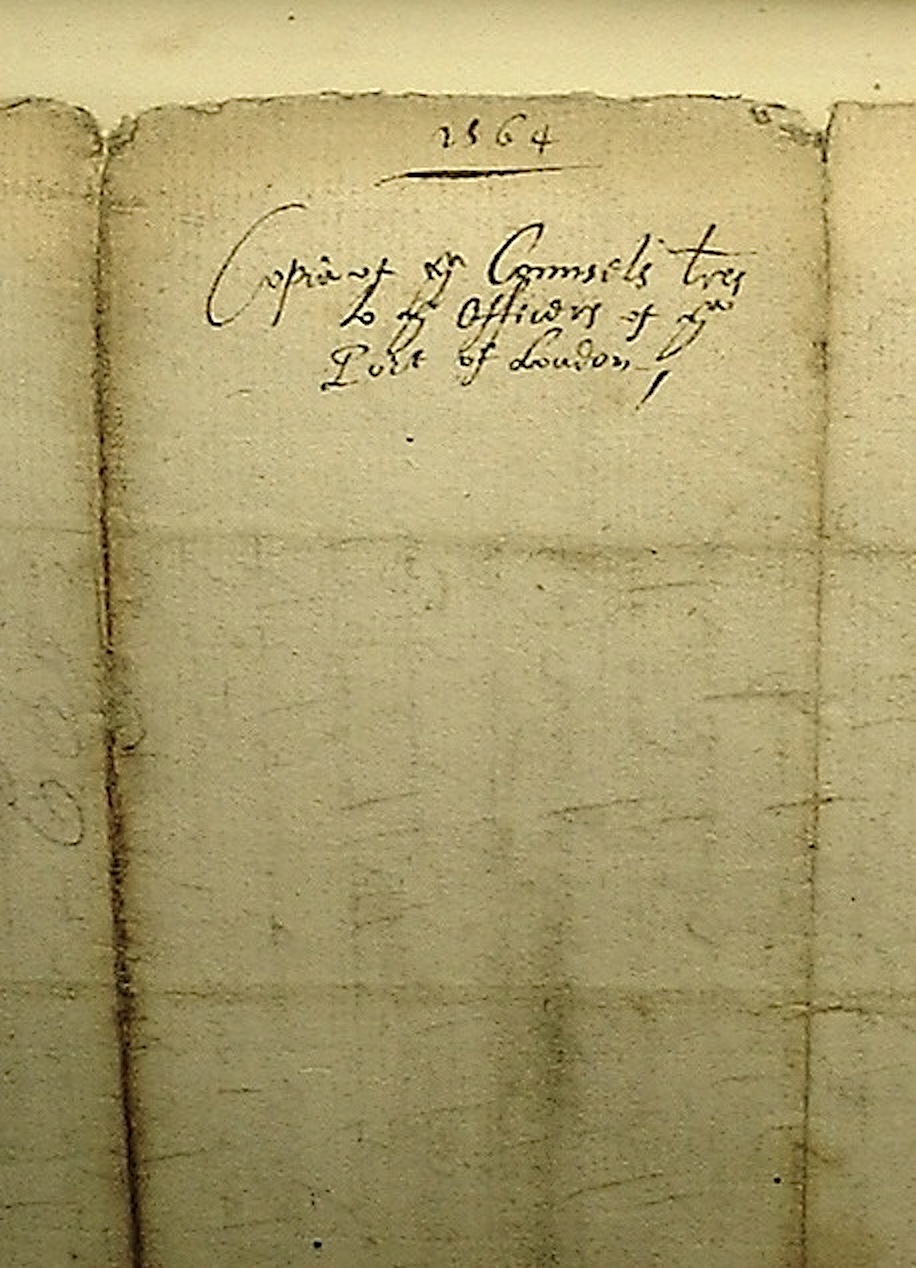 1564
Copie of ye Counsels lres
to ye Officers of ye
Port of London